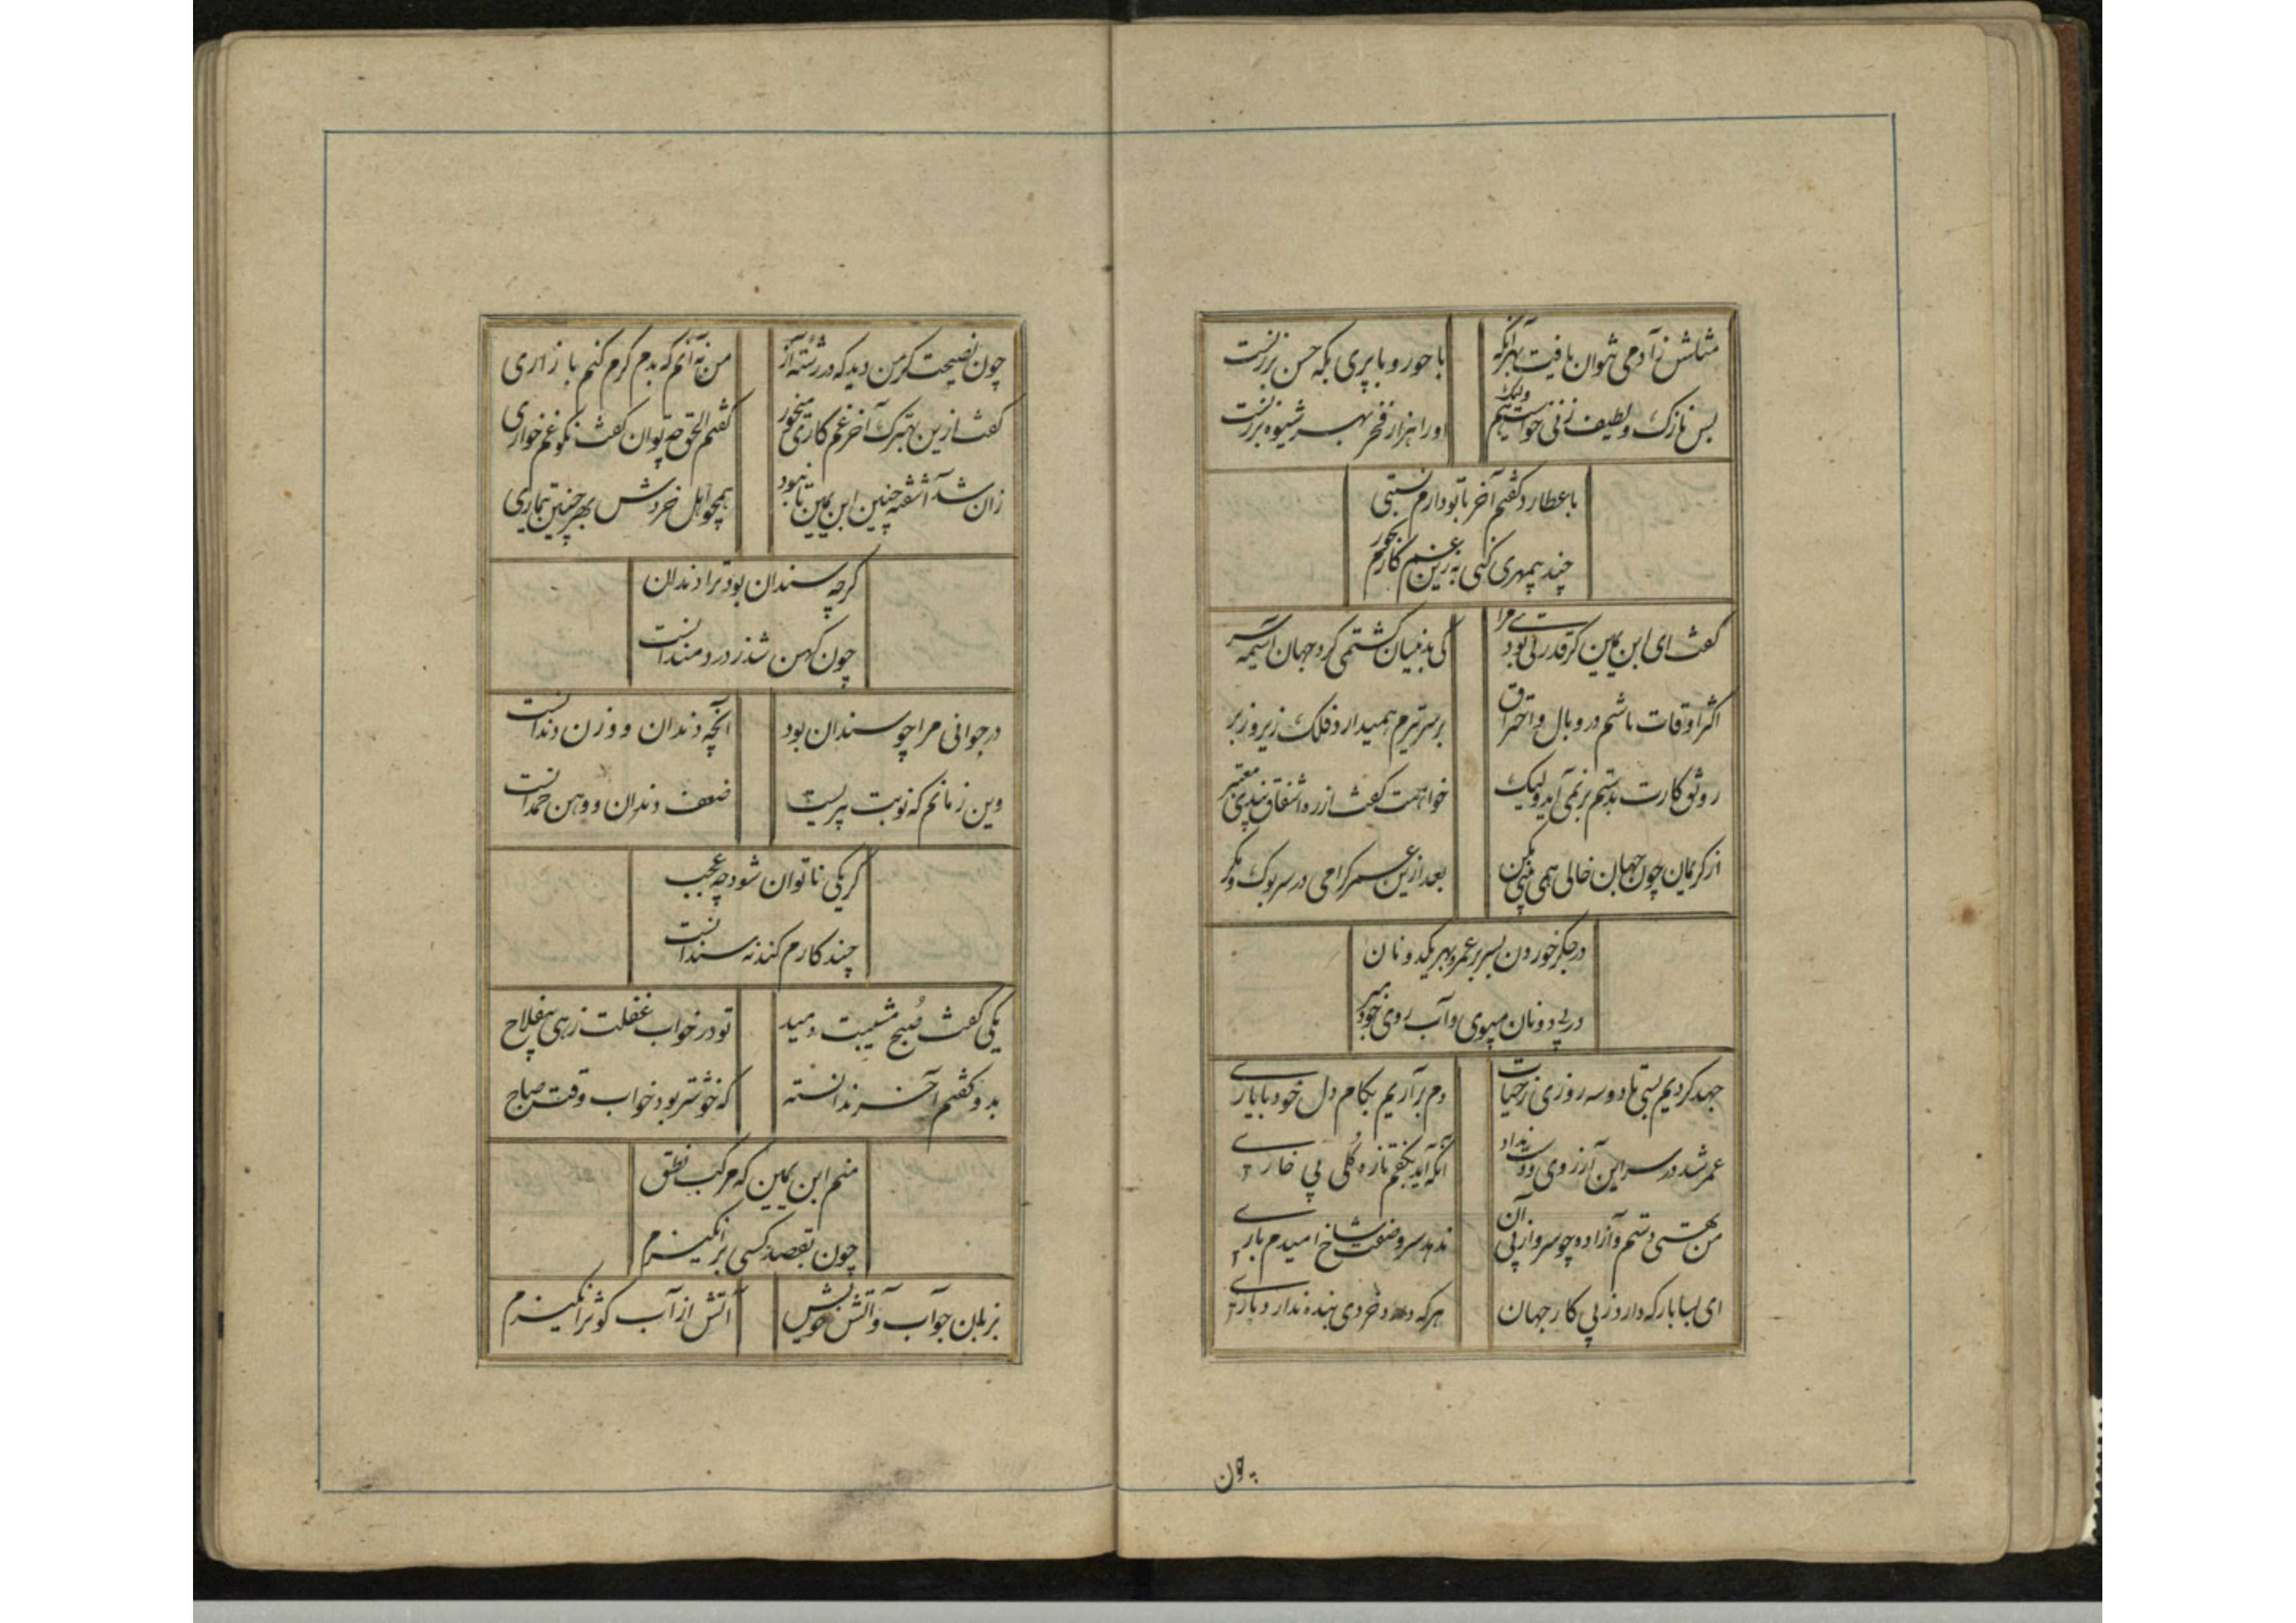 مثالش ز آدمی نتوان یافت بهر آنکه
با حور و با پری بگه حسن برزنست
بس نازک و لطیف زنی خواستیم ولیک
او را هزار فخر بهر شیوه بر زنست
با عطارد گفتم آخر با تو دارم نسبتی
چند بیمهری کنی به زین غم کارم بخور
گفت ای ابن یمین گر قدرتی بودی مرا
کی بدینسان گشتمی گرد جهان آسیمه سر
اکثر اوقات باشم در وبال و احتراق
بر سر تیرم همیدارد فلک زیر و زبر
رونق کارت بدستم بر نمی آید ولیک
خواهمت گفت از ره اشفاق پندی معتبر
از کریمان چون جهان خالی همی بینی مکن
بعد ازین عمر گرامی در سر بوک و مگر
در جگر خوردن بسر بر عمر و بهر یکدو نان
در پی دونان مپوی و آب روی خود مبر
جهد کردیم بسی تا دو سه روزی ز حیات
دم برآریم بکام دل خود با یاری
عمر شد در سر این آرزوی و دست نداد
آنکه آید بکفم تازه گلی بی خاری
من تهی دستم و آزاده چو سرو از پی آن
ندهد سرو صفت شاخ امیدم باری
ای بسا بار که دارد ز پی کار جهان
هر که در خردی بنده ندارد باری
چون
چون نصیحت گر من دید که در رشته آز
من نه آنم که بدم گرم کنم بازاری
گفت ازین بهترک آخر غم کاری میخور
گفتم الحق چه توان گفت نکو غم خواری
زان شد آشفته چنین ابن یمین تا نبود
همچو اهل خردش بهر چنین تیماری
گرچه سندان بود ترا دندان
چون کهن شد ز درد مند انست
در جوانی مرا چو سندان بود
آنچه دندان و وزن دندانست
وین زمانم که نوبت پیریست
ضعف دندان و وهن حمدانست
گر یکی ناتوان شود چه عجب
چند کارم کند نه سندانست
یکی گفت صبح مشیبت دمید
تو در خواب غفلت زهی بیفلاح
بدو گفتم آخر ندانسته
که خوشتر بود خواب وقت صباح
منم ابن یمین که مرکب نطق
چون بقصد کسی برانگیزم
بزبان چو آب و آتش خویش
آتش از آب کوثر انگیزم